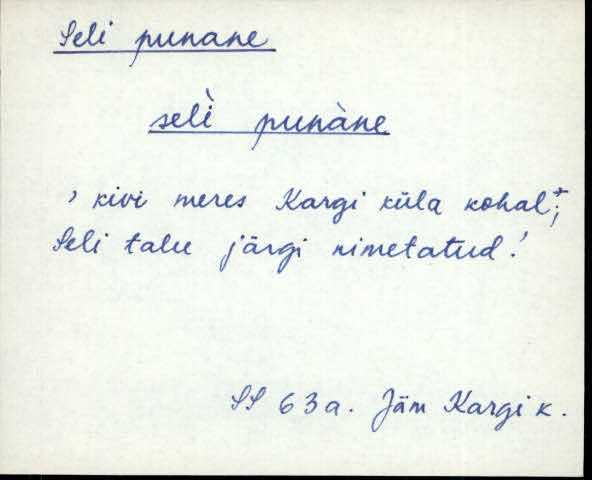 Seli punane
selì punàne
, kivi meres Kargi küla kohal+;
Seli talu järgi nimetatud.'
SS 63a. Jäm Kargi k.